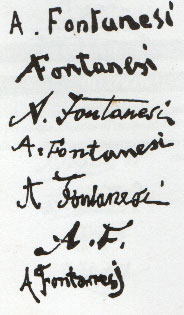 A. Fontanesi
AFontanesi
A. Fontanesi
A. Fontanesi
A Fontanesi
A. F.
A Fontanesi